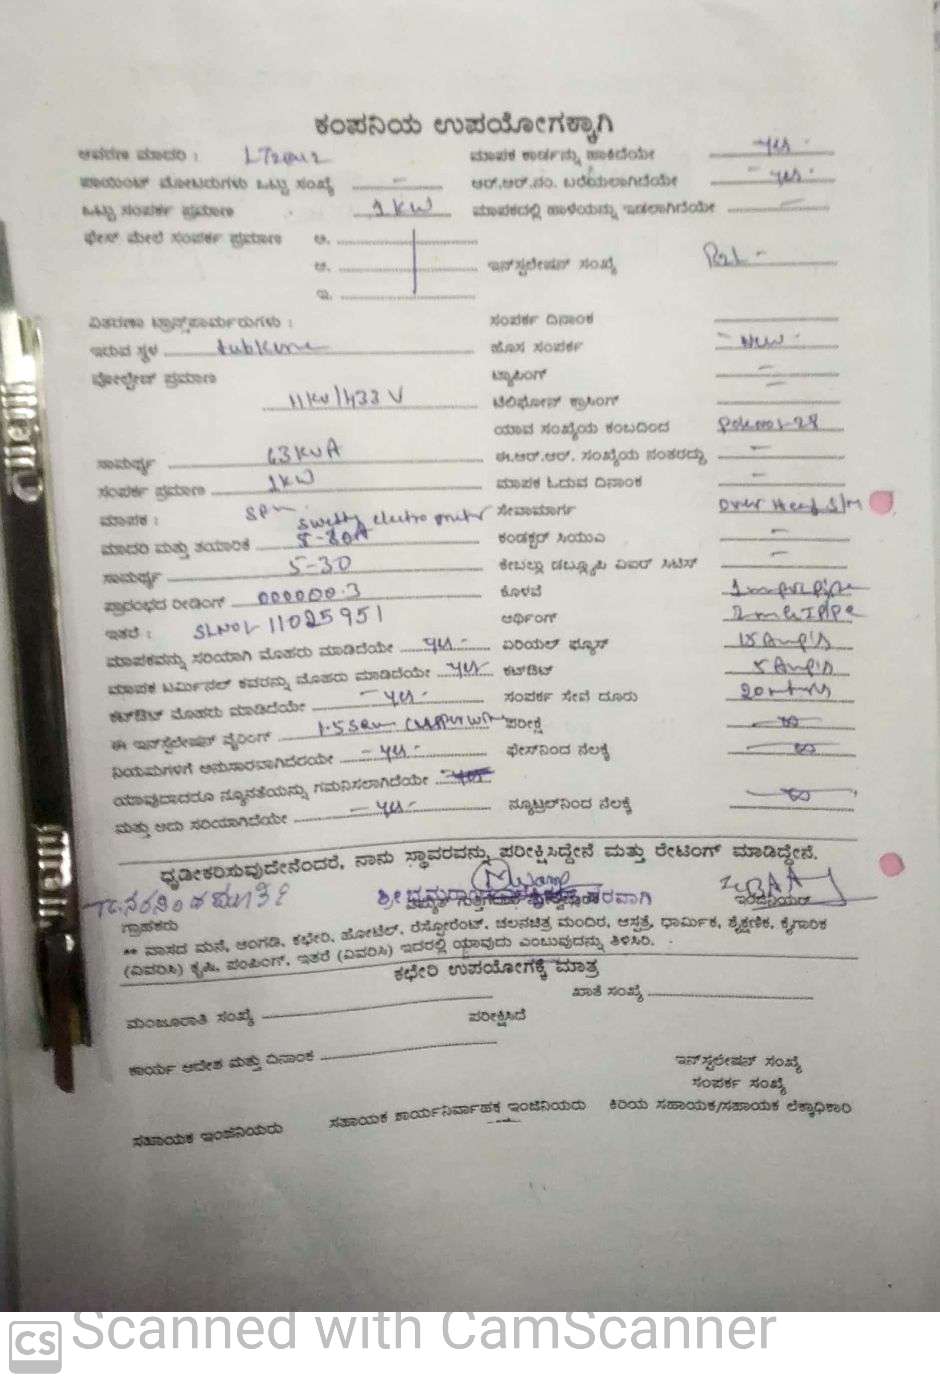 ಕಂಪನಿಯ ಉಪಯೋಗಕ್ಕಾಗಿ
ಆವರಣ ಮಾದರಿ : ಮಾಪಕ ಕಾರ್ಡನ್ನು ಹಾಕಿದೆಯೇ Yes
ಪಾಯಿಂಟ್ ಮೋಟರುಗಳು ಒಟ್ಟು ಸಂಖ್ಯೆ - ಆರ್.ಆರ್.ನಂ. ಬರೆಯಲಾಗಿದೆಯೇ - Yes -
ಒಟ್ಟು ಸಂಪರ್ಕ ಪ್ರಮಾಣ 1 KW ಮಾಪಕದಲ್ಲಿ ಹಾಳೆಯನ್ನು ಇಡಲಾಗಿದೆಯೇ -
ಫೇಸ್ ಮೇಲೆ ಸಂಪರ್ಕ ಪ್ರಮಾಣ ಅ.
ಆ. ಇನ್‌ಸ್ಟಲೇಷನ್ ಸಂಖ್ಯೆ
ಇ.
ವಿತರಣಾ ಟ್ರಾನ್ಸ್‌ಫಾರ್ಮರುಗಳು : ಸಂಪರ್ಕ ದಿನಾಂಕ
ಇರುವ ಸ್ಥಳ ಹೊಸ ಸಂಪರ್ಕ - New -
ವೋಲ್ಟೇಜ್ ಪ್ರಮಾಣ ಟ್ಯಾಪಿಂಗ್ -
11KV/433 V ಟೆಲಿಫೋನ್ ಕ್ರಾಸಿಂಗ್ -
ಯಾವ ಸಂಖ್ಯೆಯ ಕಂಬದಿಂದ Pole no - 28
ಸಾಮರ್ಥ್ಯ 63 KVA ಈ.ಆರ್.ಆರ್. ಸಂಖ್ಯೆಯ ನಂತರದ್ದು -
ಸಂಪರ್ಕ ಪ್ರಮಾಣ 1KW ಮಾಪಕ ಓದುವ ದಿನಾಂಕ -
ಮಾಪಕ : ಸೇವಾಮಾರ್ಗ Over Head S/m
ಮಾದರಿ ಮತ್ತು ತಯಾರಿಕೆ electro meter ಕಂಡಕ್ಟರ್ ಸಿಯುಎ -
ಸಾಮರ್ಥ್ಯ 5-30 ಕೇಬಲ್ಲು ಡಬ್ಲ್ಯೂಪಿ ವಿಐರ್ ಸಿಟಿಸ್ -
ಪ್ರಾರಂಭದ ರೀಡಿಂಗ್ 000000.3 ಕೊಳವೆ
ಇತರೆ : SLNO - 11025951 ಅರ್ಥಿಂಗ್
ಮಾಪಕವನ್ನು ಸರಿಯಾಗಿ ಮೊಹರು ಮಾಡಿದೆಯೇ Yes - ಏರಿಯಲ್ ಫ್ಯೂಸ್ 15 Amp's
ಮಾಪಕ ಟರ್ಮಿನಲ್ ಕವರನ್ನು ಮೊಹರು ಮಾಡಿದೆಯೇ Yes - ಕಟ್‌ಔಟ್ 5 Amp's
ಕಟ್‌ಔಟ್ ಮೊಹರು ಮಾಡಿದೆಯೇ - Yes - ಸಂಪರ್ಕ ಸೇವೆ ದೂರು 20 mtrs
ಈ ಇನ್‌ಸ್ಟಲೇಷನ್ ವೈರಿಂಗ್ ಪರೀಕ್ಷೆ
ನಿಯಮಗಳಿಗೆ ಅನುಸಾರವಾಗಿದೆಯೇ - Yes - ಫೇಸ್‌ನಿಂದ ನೆಲಕ್ಕೆ
ಯಾವುದಾದರೂ ನ್ಯೂನತೆಯನ್ನು ಗಮನಿಸಲಾಗಿದೆಯೇ
ಮತ್ತು ಅದು ಸರಿಯಾಗಿದೆಯೇ - Yes - ನ್ಯೂಟ್ರಲ್‌ನಿಂದ ನೆಲಕ್ಕೆ
ಧೃಡೀಕರಿಸುವುದೇನೆಂದರೆ, ನಾನು ಸ್ಥಾವರವನ್ನು ಪರೀಕ್ಷಿಸಿದ್ದೇನೆ ಮತ್ತು ರೇಟಿಂಗ್ ಮಾಡಿದ್ದೇನೆ.
ಗ್ರಾಹಕರು ಪರವಾಗಿ ಇಂಜಿನಿಯರ್
** ವಾಸದ ಮನೆ, ಅಂಗಡಿ, ಕಛೇರಿ, ಹೋಟೆಲ್, ರೆಸ್ಟೋರೆಂಟ್, ಚಲನಚಿತ್ರ ಮಂದಿರ, ಆಸ್ಪತ್ರೆ, ಧಾರ್ಮಿಕ, ಶೈಕ್ಷಣಿಕ, ಕೈಗಾರಿಕೆ
(ವಿವರಿಸಿ) ಕೃಷಿ, ಪಂಪಿಂಗ್, ಇತರೆ (ವಿವರಿಸಿ) ಇದರಲ್ಲಿ ಯಾವುದು ಎಂಬುವುದನ್ನು ತಿಳಿಸಿರಿ.
ಕಛೇರಿ ಉಪಯೋಗಕ್ಕೆ ಮಾತ್ರ
ಮಂಜೂರಾತಿ ಸಂಖ್ಯೆ ಖಾತೆ ಸಂಖ್ಯೆ
ಪರೀಕ್ಷಿಸಿದೆ
ಕಾರ್ಯ ಆದೇಶ ಮತ್ತು ದಿನಾಂಕ ಇನ್‌ಸ್ಟಲೇಷನ್ ಸಂಖ್ಯೆ
ಸಂಪರ್ಕ ಸಂಖ್ಯೆ
ಸಹಾಯಕ ಇಂಜಿನಿಯರು ಸಹಾಯಕ ಕಾರ್ಯನಿರ್ವಾಹಕ ಇಂಜಿನಿಯರು ಕಿರಿಯ ಸಹಾಯಕ/ಸಹಾಯಕ ಲೆಕ್ಕಾಧಿಕಾರಿ
CS Scanned with CamScanner